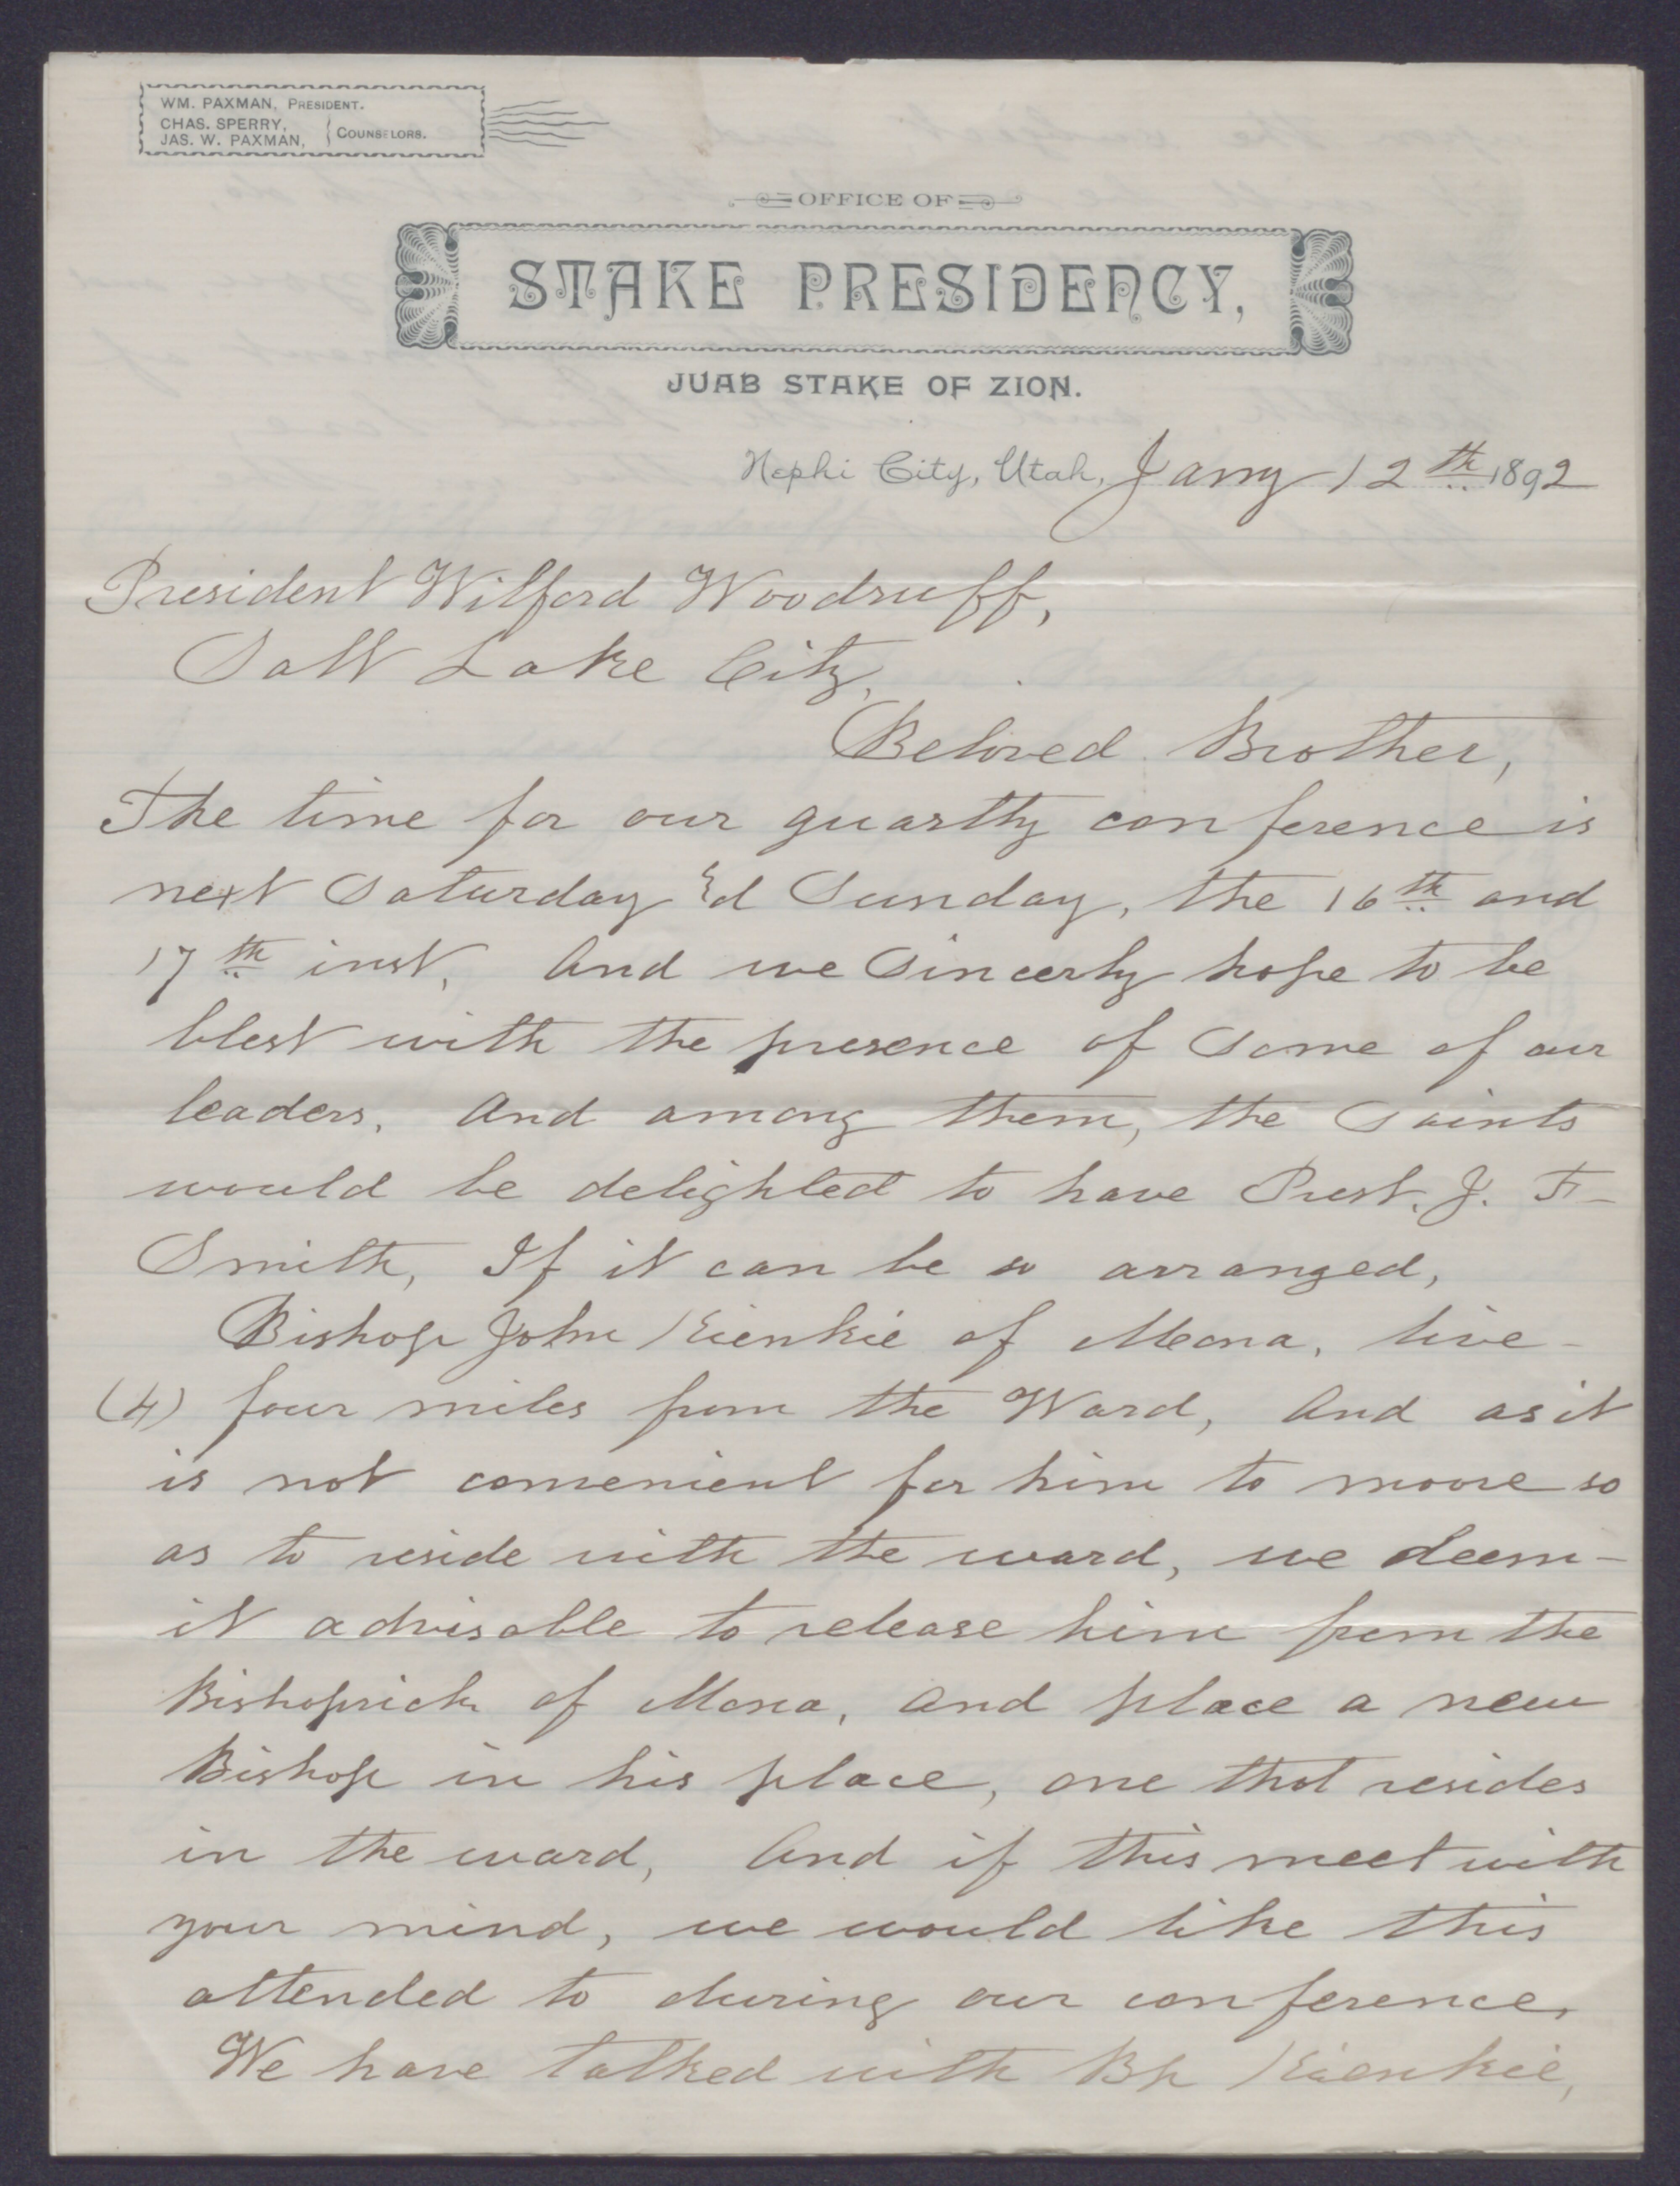 WM. PAXMAN, PRESIDENT.
CHAS. SPERRY,
JAS. W. PAXMAN,
COUNSELORS.
OFFICE OF
STAKE PRESIDENCY,
JUAB STAKE OF ZION.
Nephi City, Utah, Jany 12th 1892
President Wilford Woodruff,
Salt Lake City,
Beloved Brother,
The time for our quartly conference is
next Saturday &d Sunday, the 16th and
17th inst, And we Sincerly hope to be
blest with the presence of Some of our
leaders, And among them, the Saints
would be delighted to have Prest. J. F
Smith, If it can be so arranged,
Bishop John Kienkie of Mona, live-
(4) four miles from the Ward, And as it
is not convenient for him to moove so
as to reside with the ward, we deem
it advisable to release him from the
Bishoprick of Mona, and place a new
Bishop in his place, one that resides
in the ward, And if this meet with
your mind, we would like this
attended to during our conference,
We have talked with Bp Kienkie,